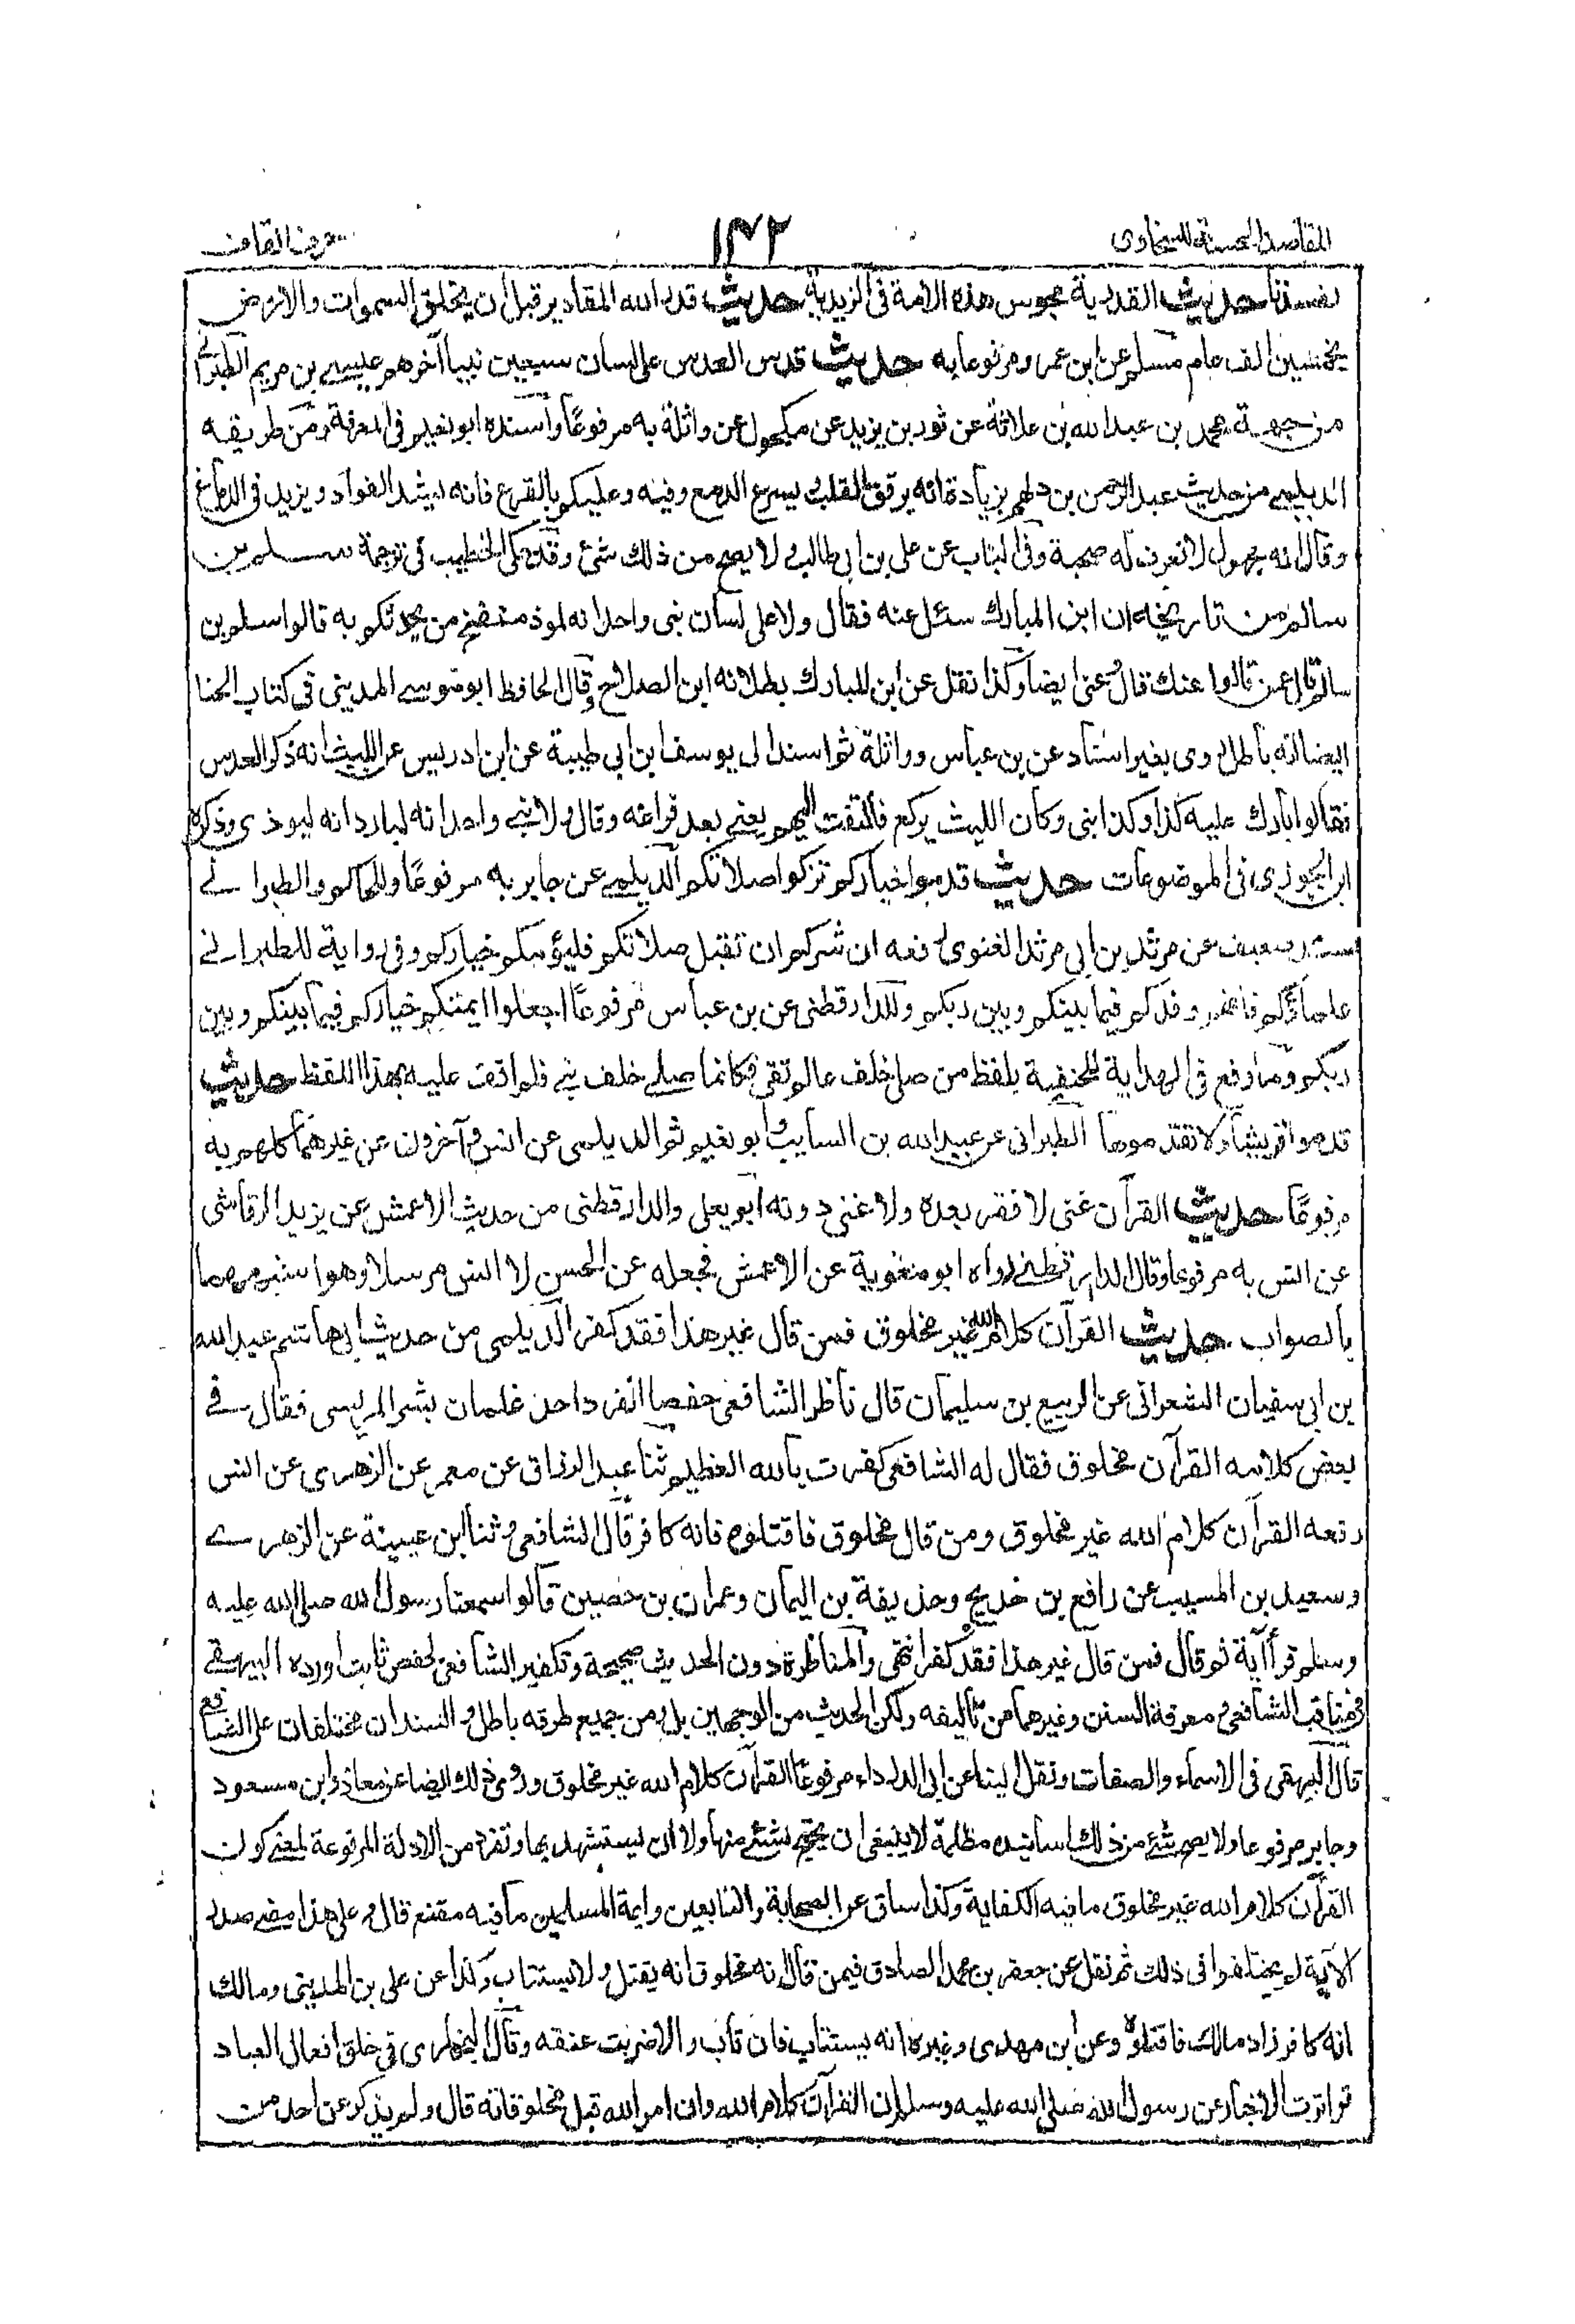 المقاصد الحسنة للسخاوى
١٤٢
حرف القاف
حديث القدرية مجوس هذه الامة فى الزيدية حديث قدر الله المقادير قبل ان يخلق السموات والارض
بخمسين الف عام مسلم عن ابن عمرو مرفوعا به حديث قدس العدس على لسان سبعين نبيا آخرهم عيسى بن مريم الطبرانى
من جهة محمد بن عبد الله بن علاثة عن ثور بن يزيد عن مكحول عن واثلة به مرفوعًا واسنده ابو نعيم فى المعرفة ومن طريقه
الديلمى من حديث عبد الرحمن بن دلهم بزيادة انه يرقق القلب ويسرع الدمع وفيه وعليكم بالقرع فانه يشد الفواد ويزيد فى الدماغ
وقال انه مجهول لا نعرف له صحبة وفى الباب عن على بن ابى طالب ولا يصح من ذلك شئ وقد حكى الخطيب فى ترجمة سلم بن
سالم من تاريخه ان ابن المبارك سئل عنه فقال ولا على لسان نبى واحد انه لموذ منفخ من يحدثكم به قالوا سلم بن
سالم قال عمن قالوا عنك قال وعنى ايضا وكذا نقل عن ابن المبارك بطلانه ابن الصلاح وقال الحافظ ابو موسى المدينى فى كتاب الحنا
ايضا انه باطل روى بغير اسناد عن بن عباس وواثلة ثم اسند الى يوسف ابن ابى طيبة عن ابن ادريس عن الليث انه ذكر العدس
فقالوا بارك عليه كذا وكذا نبى وكان الليث يركع فالتفت اليهم يعنى بعد فراغه وقال ولا نبى واحد انه لبارد انه ليوذى وذكره
ابن الجوزى فى الموضوعات حديث قدموا خياركم تزكوا صلاتكم الديلمى عن جابر به مرفوعًا وللحاكم والطبرانى
بسند ضعيف عن مرثد بن ابى مرثد الغنوى رفعه ان سركم ان تقبل صلاتكم فليؤمكم خياركم وفى رواية للطبرانى
علماؤكم فانهم وفدكم فيما بينكم وبين ربكم وللدارقطنى عن بن عباس مرفوعًا اجعلوا ائمتكم خياركم فيما بينكم وبين
ربكم وما وقع فى الهداية للحنفية بلفظ من صلى خلف عالم تقى فكانما صلى خلف نبى فلم اقف عليه بهذا اللفظ حديث
قدموا قريشا ولا تقدموها الطبرانى عن عبد الله بن السايب وابو نعيم ثم الديلمى عن انس وآخرون عن غيرهما كلهم به
مرفوعًا حديث القرآن غنى لا فقر بعده ولا غنى دونه ابو يعلى والدارقطنى من حديث الاعمش عن يزيد الرقاشى
عن انس به مرفوعا وقال الدارقطنى رواه ابو معوية عن الاعمش فجعله عن الحسن لا انس مرسلا وهو اشبههما
بالصواب حديث القرآن كلام الله غير مخلوق فمن قال غير هذا فقد كفر الديلمى من حديث ابى هاشم عبد الله
بن ابى سفيان الشعرانى عن الربيع بن سليمان قال ناظر الشافعى حفصا الفرد احد غلمان بشر المريسى فقال فى
بعض كلامه القرآن مخلوق فقال له الشافعى كفرت بالله العظيم ثنا عبد الرزاق عن معمر عن الزهرى عن انس
رفعه القرآن كلام الله غير مخلوق ومن قال مخلوق فاقتلوه فانه كافر قال الشافعى وثنا ابن عيينة عن الزهرى
وسعيد بن المسيب عن رافع بن خديج وحذيفة بن اليمان وعمران بن حصين قالوا سمعنا رسول الله صلى الله عليه
وسلم قرأ آية ثم قال فمن قال غير هذا فقد كفر انتهى والمناظرة دون الحديث صحيحة وتكفير الشافعى لحفص ثابت اورده البيهقى
فى مناقب الشافعى ومعرفة السنن وغيرهما من تأليفه ولكن الحديث من الوجهين بل من جميع طرقه باطل والسندان مختلقان على الشافعى
قال البيهقى فى الاسماء والصفات ونقل الينا عن ابى الدرداء مرفوعًا القرآن كلام الله غير مخلوق وروى ذلك ايضا عن معاذ وابن مسعود
وجابر مرفوعا ولا يصح شئ من ذلك اسانيده مظلمة لا ينبغى ان يحتج بشئ منها ولا ان يستشهد بها وتفرد من الادلة المرفوعة لمعنى كون
القرآن كلام الله غير مخلوق ما فيه الكفاية وكذا ساق عن الصحابة والتابعين وايمة المسلمين ما فيه مقنع قال وعلى هذا مضى صدر
الآية لم يختلفوا فى ذلك ثم نقل عن جعفر بن محمد الصادق فيمن قال انه مخلوق انه يقتل ولا يستتاب وكذا عن على بن المدينى ومالك
انه كافر زاد مالك فاقتلوه وعن ابن مهدى وغيره انه يستتاب فان تاب والا ضربت عنقه وقال البخارى فى خلق افعال العباد
تواترت الاخبار عن رسول الله صلى الله عليه وسلم ان القرآن كلام الله وان امر الله قبل مخلوقاته قال ولم يذكر عن احد من